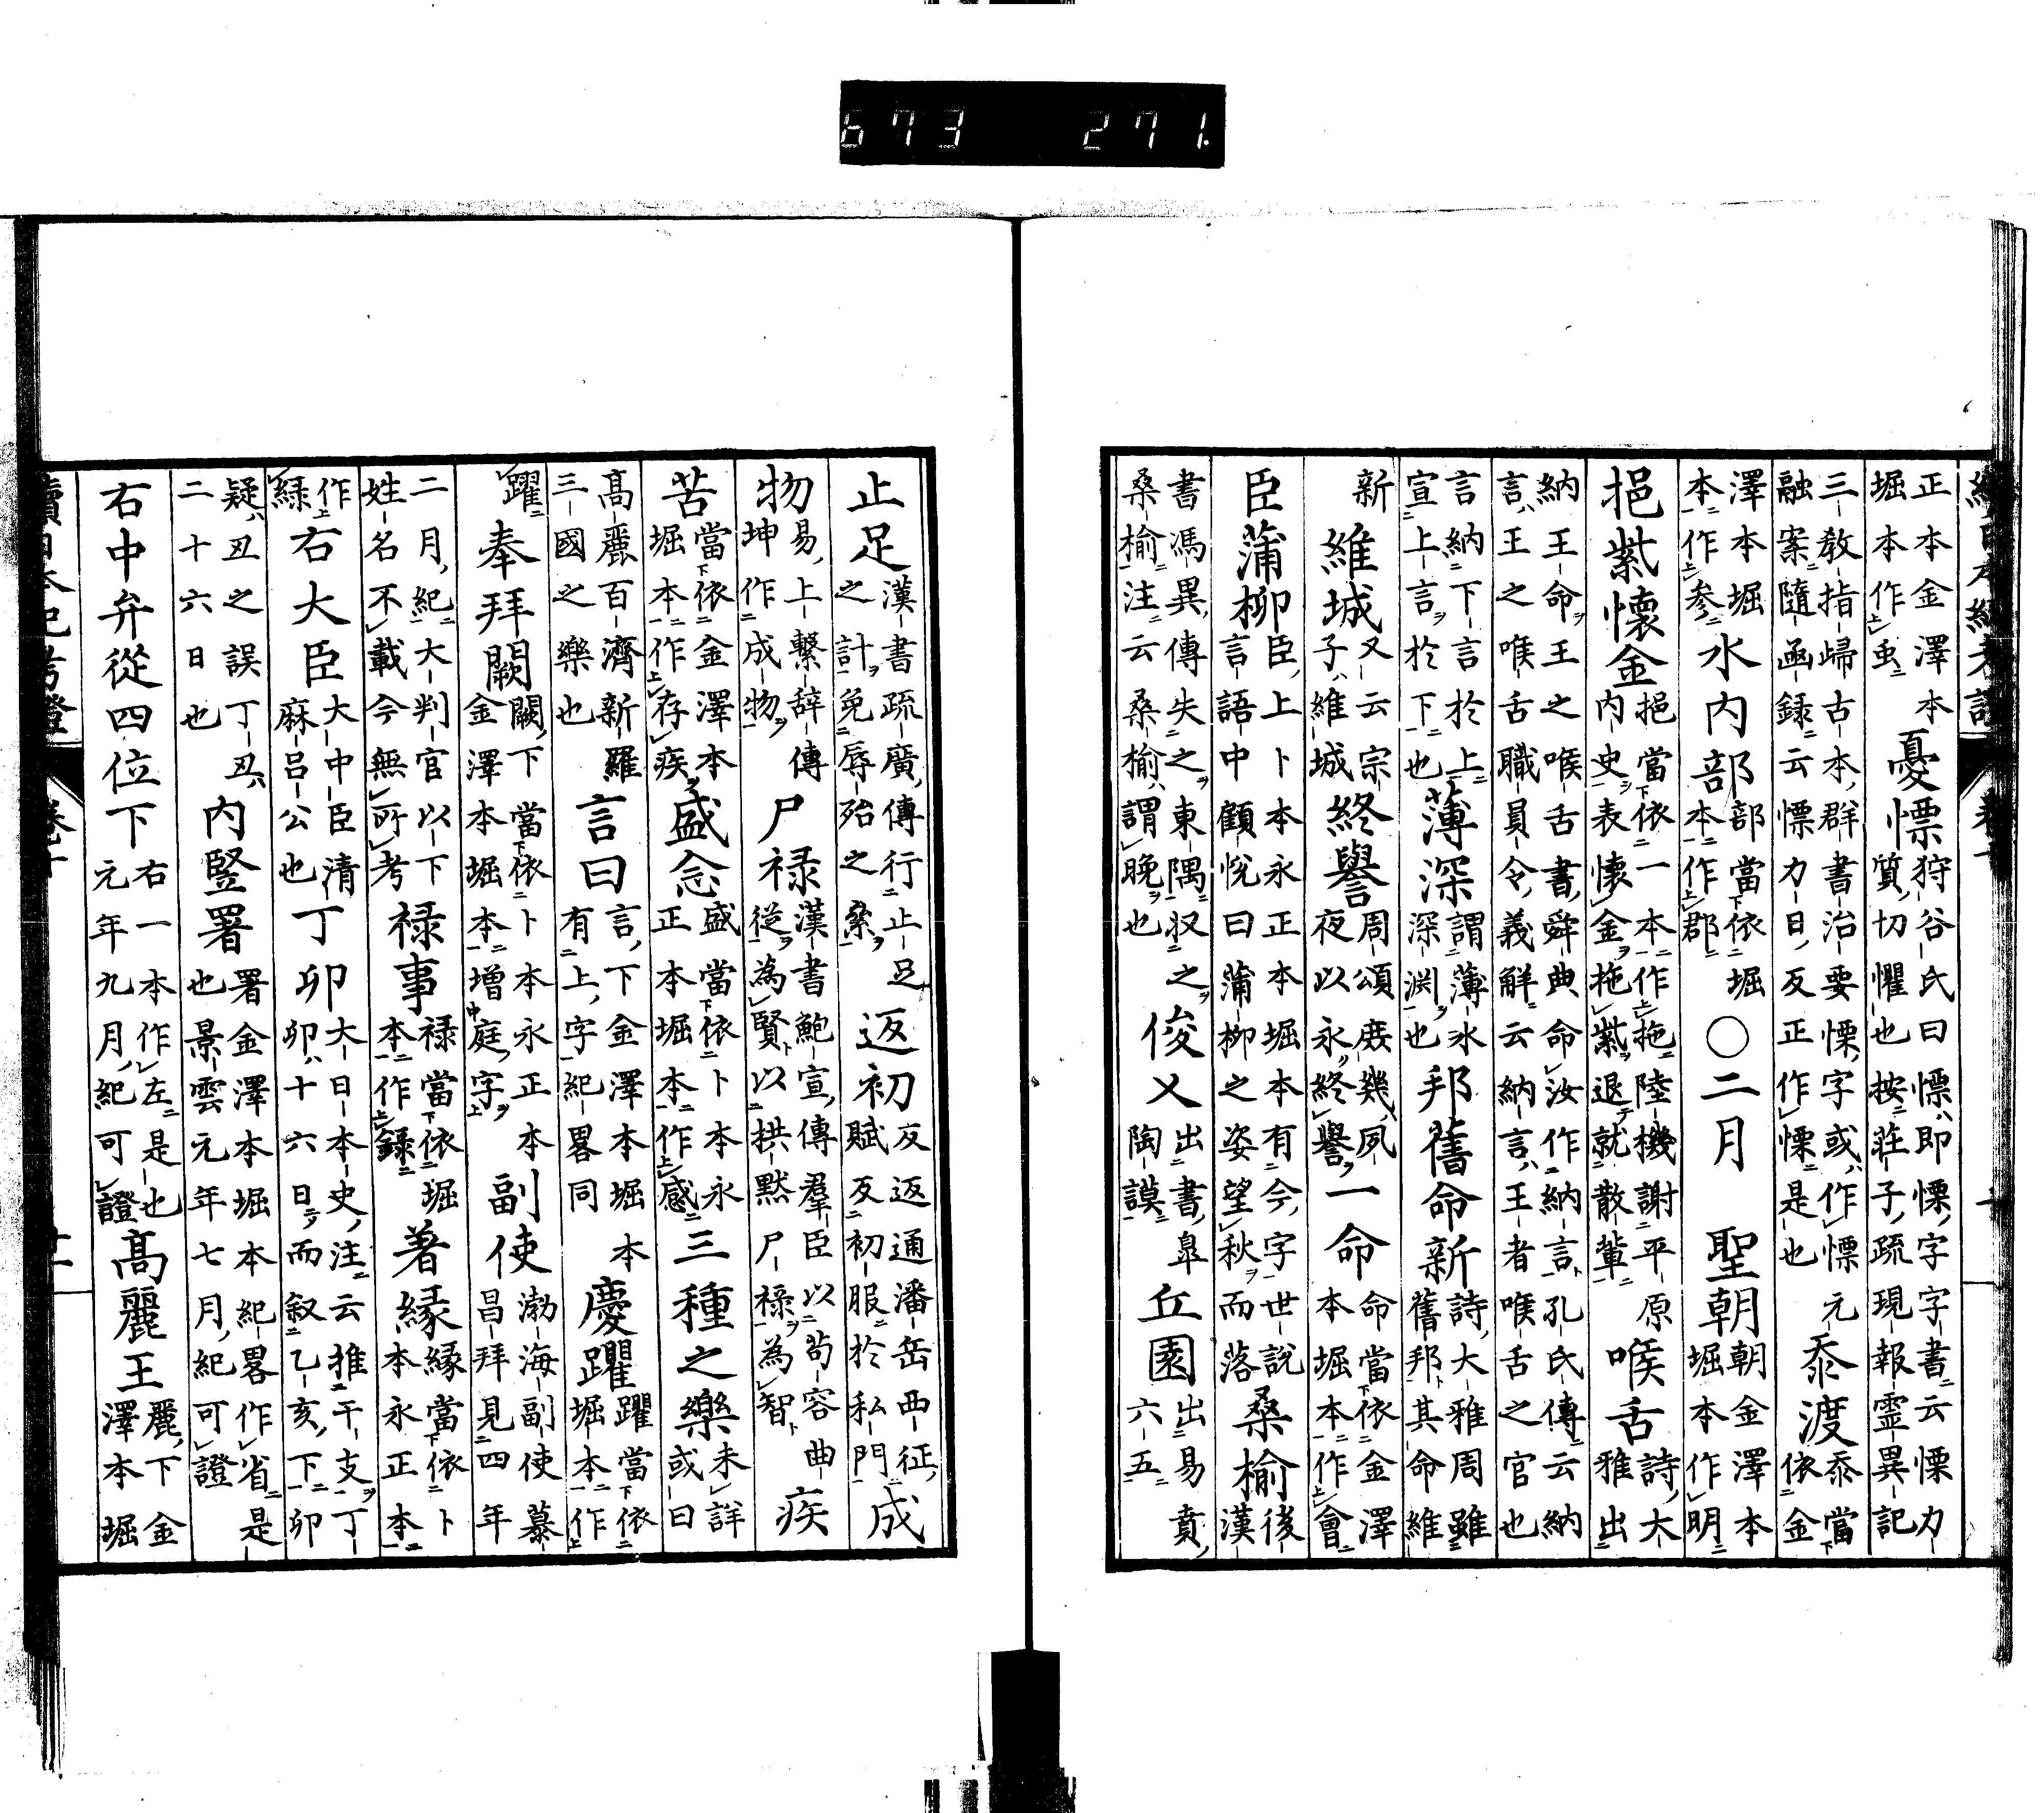 673 271.
正本金澤本
堀本作虫
憂慄
狩谷氏曰慄即慄字字書云慄力
質切懼也按莊子疏現報靈異記
三教指歸古本群書治要慄字或作慄元
融案隨函録云慄力日反正作慄是也
忝渡
忝當依金
澤本堀
本作参
水内部
部當依堀
本作郡
〇二月
聖朝
朝金澤本
堀本作明
挹紫懷金
挹當依一本作拖陸機謝平原
内史表懷金拖紫退就散輩
喉舌
詩大
雅出
納王命王之喉舌書舜典命汝作納言孔氏傳云納
言王之喉舌職員令義解云納言王者喉舌之官也
言納下言於上
宣上言於下也
薄深
謂薄水
深淵也
邦舊命新
詩大雅周雖
舊邦其命維
新
維城
又云宗
子維城
終譽
周頌庶幾夙
夜以永終譽
一命
命當依金澤
本堀本作會
臣蒲柳
臣上卜本永正本堀本有今字世説
言語中顧悅曰蒲柳之姿望秋而落
桑榆
後
漢
書馮異傳失之東隅収之
桑榆注云桑榆謂晩也
俊乂
出書皐
陶謨
丘園
出易賁
六五
止足
漢書疏廣傳行止足
之計免辱殆之纍
返初
返通潘岳西征
賦反初服於私門
成
物
易上繫辞傳
坤作成物
尸禄
漢書鮑宣傳羣臣以苟容曲
從為賢以拱黙尸禄為智
疾
苦
當依金澤本
堀本作存疾
盛念
盛當依卜本永
正本堀本作感
三種之樂
未詳
或曰
高麗百濟新羅
三國之樂也
言曰
言下金澤本堀本
有上字紀畧同
慶躍
躍當依
堀本作
躍
奉拜闕
闕下當依卜本永正本
金澤本堀本増庭字
副使
渤海副使慕
昌拜見四年
二月紀大判官以下
姓名不載今無所考
禄事
禄當依堀
本作録
著緣
緣當依卜
本永正本
作
緑
右大臣
大中臣清
麻呂公也
丁卯
大日本史注云推干支丁
卯十六日而叙乙亥下卯
疑丑之誤丁丑
二十六日也
内竪署
署金澤本堀本紀畧作省是
也景雲元年七月紀可證
右中弁從四位下
右一本作左是也
元年九月紀可證
高麗王
麗下金
澤本堀